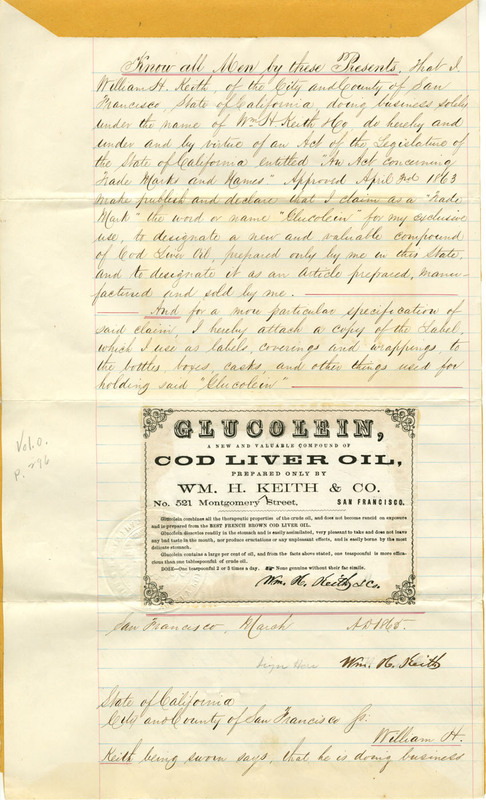 Know all Men by these Presents. That I.
William H. Keith, of the City and County of San
Francisco, State of California, doing business solely
under the name of Wm H Keith & Co, do hereby and
under and by virtue of an Act of the Legislature of
the State of California entitled "An Act concerning
Trade Marks and Names" Approved April 2nd 1863
make publish and declare that I claim as a "Trade
Mark" the word or name "Glucolein" for my exclusive
use, to designate a new and valuable compound
of Cod Liver Oil, prepared only by me in this State,
and to designate it as an Article prepared, manu-
factured and sold by me.
And for a more particular specification of
said claim, I hereby attach a copy of the Label,
which I use as labels, coverings and wrappings, to
the bottles, boxes, casks, and other things used for
holding said "Glucolein"
Vol. 0.
p. 276
GLUCOLEIN,
A NEW AND VALUABLE COMPOUND OF
COD LIVER OIL,
PREPARED ONLY BY
WM. H. KEITH & CO.
No. 521 Montgomery Street. SAN FRANCISCO.
Glucolein combines all the therapeutic properties of the crude oil, and does not become rancid on exposure
and is prepared from the BEST FRENCH BROWN COD LIVER OIL.
Glucolein dissolves readily in the stomach and is easily assimilated, very pleasant to take and does not leave
any bad taste in the mouth, nor produce eructations or any unpleasant effects, and is easily borne by the most
delicate stomach.
Glucolein contains a large per cent of oil, and from the facts above stated, one teaspoonful is more effica-
cious than one tablespoonful of crude oil.
DOSE—One teaspoonful 2 or 3 times a day. None genuine without their fac simile.
Wm. H. Keith & Co.
San Francisco, Marsh A.D. 1865.
Wm. H. Keith
State of California
City and County of San Francisco Ss.
William H.
Keith being sworn says, that he is doing business